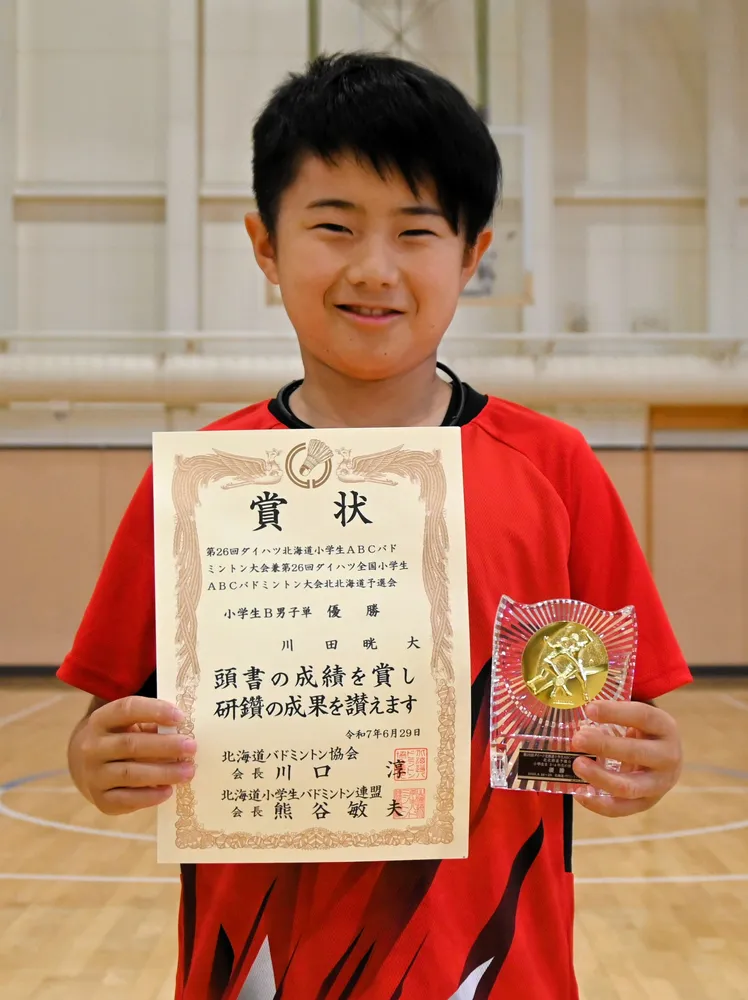 賞状
第26回ダイハツ北海道小学生ABCバド
ミントン大会兼第26回ダイハツ全国小学生
ABCバドミントン大会北北海道予選会
小学生B男子単 優勝
川田晄大
頭書の成績を賞し
研鑽の成果を讃えます
令和7年6月29日
北海道バドミントン協会
会長 川口 淳
北海道小学生バドミントン連盟
会長 熊谷敏夫